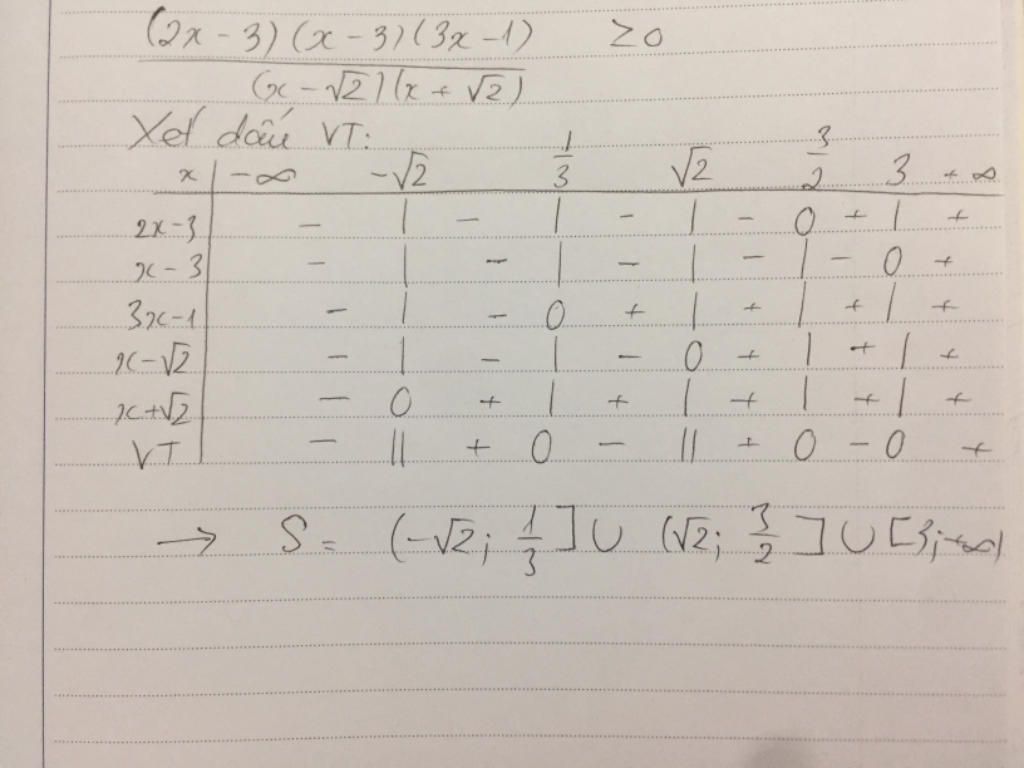 (2x - 3) (x - 3) (3x - 1) ≥ 0
(x - √2) (x + √2)
Xét dấu VT:
x -∞ -√2 1/3 √2 3/2 3 +∞
2x-3 - | - | - | - 0 + | +
x-3 - | - | - | - | - 0 +
3x-1 - | - 0 + | + | + | +
x-√2 - | - | - 0 + | + | +
x+√2 - 0 + | + | + | + | +
VT - || + 0 - || + 0 - 0 +
→ S = (-√2; 1/3] ∪ (√2; 3/2] ∪ [3; +∞)